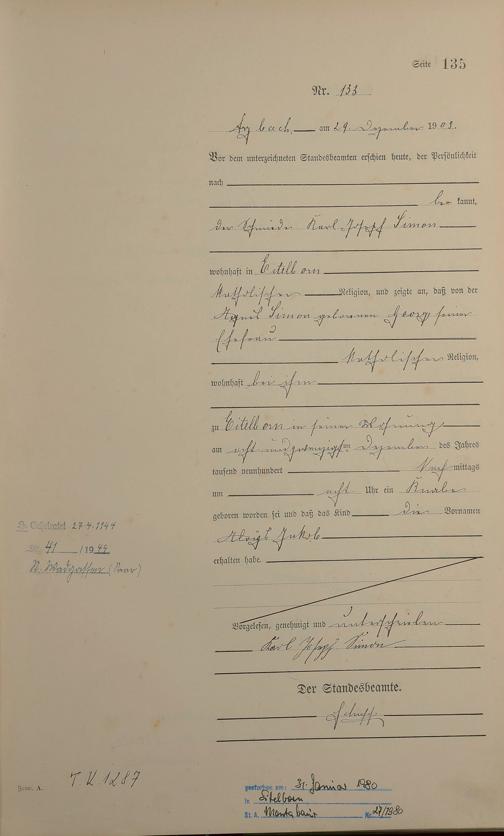 Seite 135
Nr. 133
Arzbach, am 29. Dezember 190
Vor dem unterzeichneten Standesbeamten erschien heute, der Persönlichkeit
nach
be kannt,
der Schmiede Karl Josef Simon
wohnhaft in Eitelborn
katholischer Religion, und zeigte an, daß von der
Simon geborenen Georg seiner
Ehefrau
katholischer Religion,
wohnhaft bei ihm
zu Eitelborn in seiner Wohnung
am acht und zwanzigsten Dezember des Jahres
tausend neunhundert Nach mittags
um acht Uhr ein Knabe
geboren worden sei und daß das Kind die Vornamen
Aloys Jakob
erhalten habe.
Vorgelesen, genehmigt und unterschrieben
Karl Josef Simon
Der Standesbeamte.
27.4.1944
41 / 1944
Wadgassen (Saar)
T. V. 1287
A.
gestorben am: 31. Januar 1980
in Eitelborn
St. A. Montabaur Nr. 27/1980